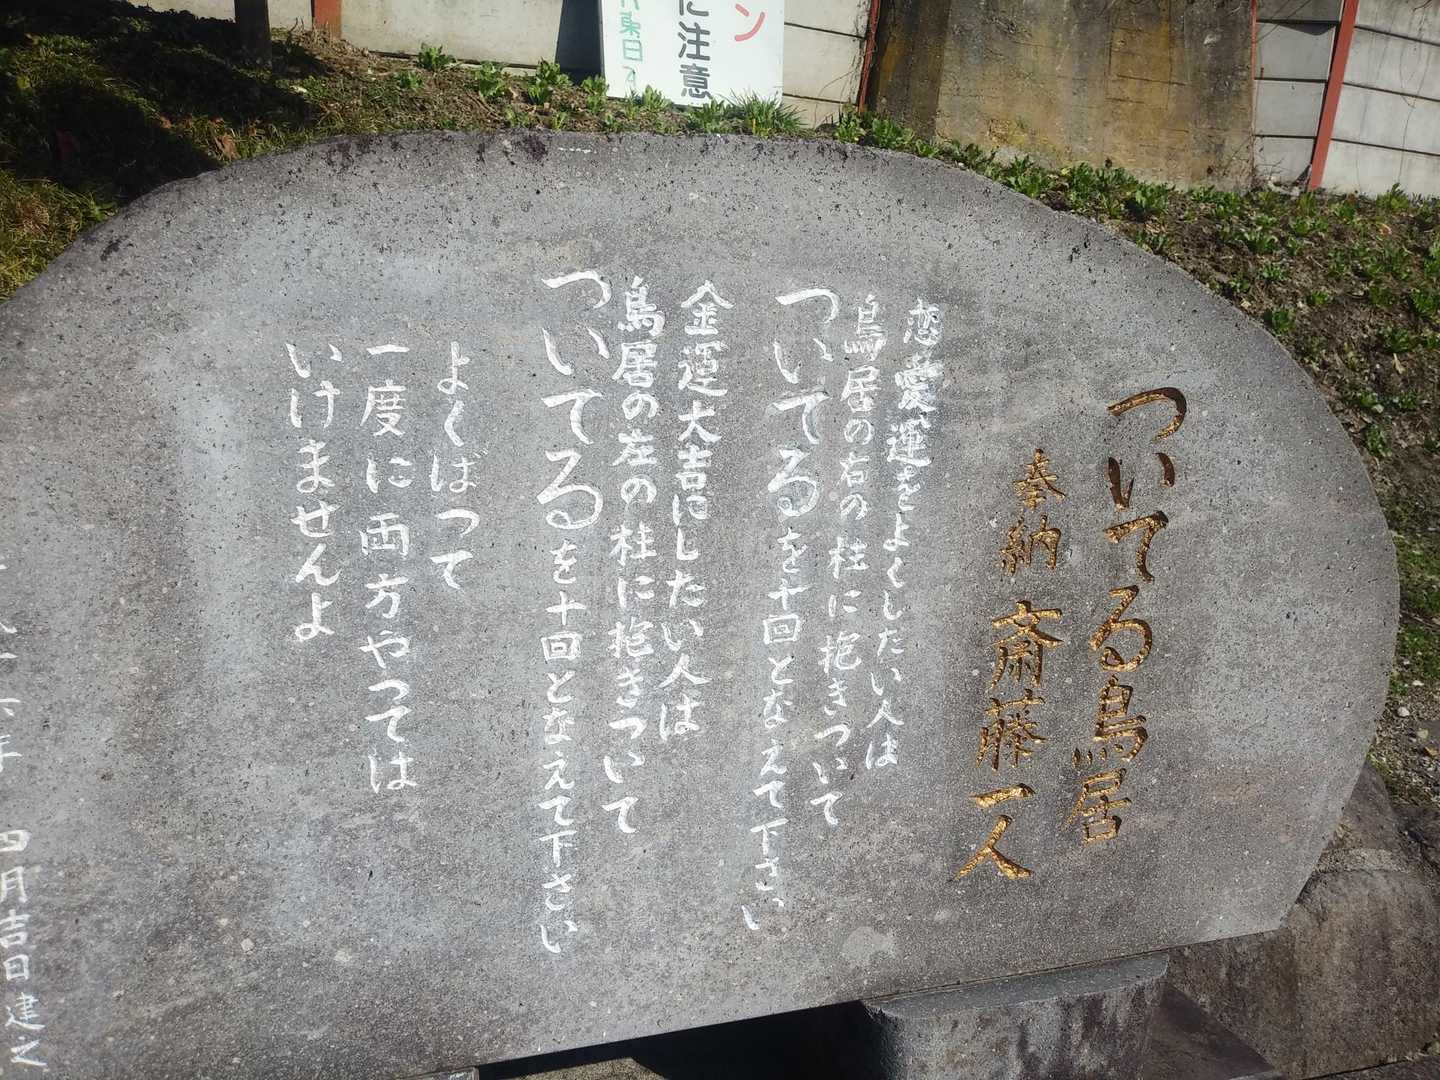 ついてる鳥居
奉納 斎藤一人
恋愛運をよくしたい人は
鳥居の右の柱に抱きついて
ついてるを十回となえて下さい
金運大吉にしたい人は
鳥居の左の柱に抱きついて
ついてるを十回となえて下さい
よくばって
一度に両方やっては
いけませんよ
年 四月吉日建之
ン
に注意
東日